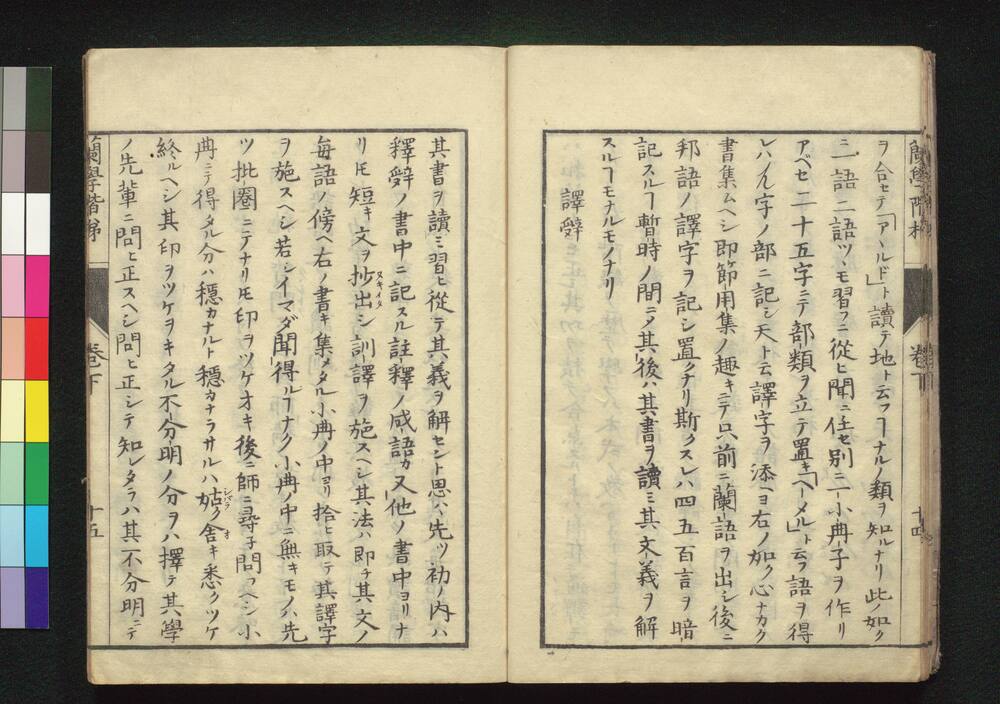 蘭學階梯
卷下
十四
ヲ合セテ「アールド」ト讀テ地ト云フヿナルノ類ヲ知ルナリ此ノ如ク
一語二語ツヽモ習フニ從ヒ聞ニ任セ別ニ一小冊子ヲ作リ
アベセ二十五字ニテ部類ヲ立テ置キ「ヘーメル」ト云フ語ヲ得
レハ八ノ字ノ部ニ記シ天ト云譯字ヲ添ヘヨ右ノ如ク心ナカク
書集ムヘシ即節用集ノ趣キニテ只前ニ蘭語ヲ出シ後ニ
邦語ノ譯字ヲ記シ置クナリ斯クスレハ四五百言ヲ暗
記スルヿ暫時ノ間ニメ其後ハ其書ヲ讀ミ其文義ヲ解
スルヿモナルモノナリ
譯辭
其書ヲ讀ミ習ヒ從テ其義ヲ解セント思ハ先ツ初ノ内ハ
釋辭ノ書中ニ記スル註釋ノ成語カ又他ノ書中ヨリナ
リ𪜈短キ文ヲ抄出シ訓譯ヲ施スヘシ其法ハ即チ其文ノ
ヌキイタ
每語ノ傍ヘ右ノ書キ集メタル小冊ノ中ヨリ拾ヒ取テ其譯字
ヲ施スヘシ若シイマダ聞得ルヿナク小冊ノ中ニ無キモノハ先
ツ批圈ニテナリ𪜈印ヲツケオキ後ニ師ニ尋子問フヘシ小
冊ニテ得タル分ハ穩カナルト穩カナラサルハ姑ク舍キ悉クツケ
シバラ
す
終ルヘシ其印ヲツケヲキタル不分明ノ分ヲハ擇テ其學
ノ先輩ニ問ヒ正スヘシ問ヒ正シテ知レタラハ其不分明ニテ
蘭學階梯
卷下
十五